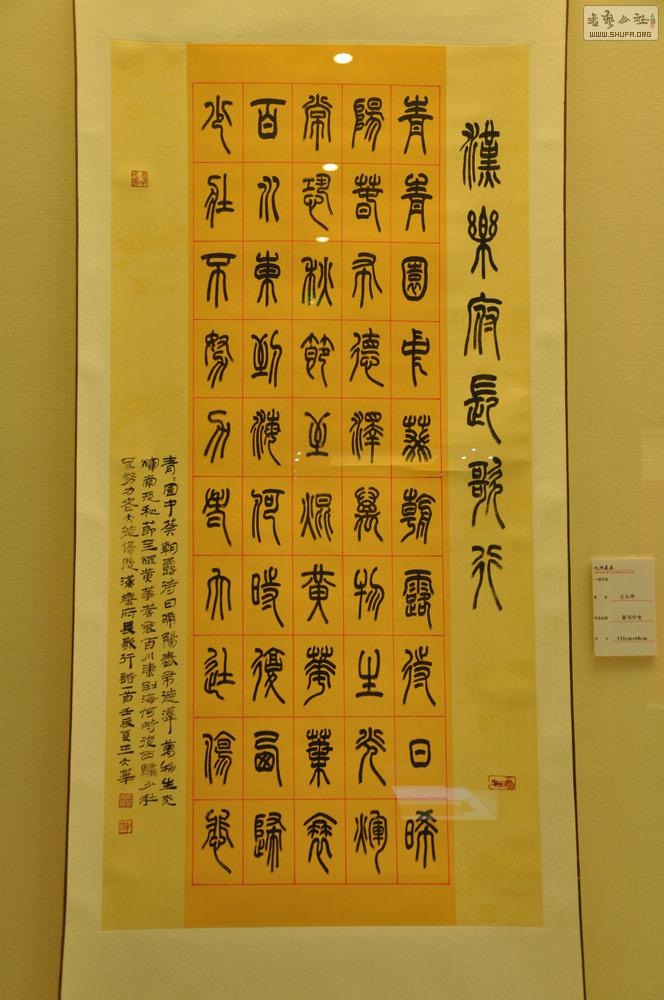 漢樂府長歌行
青青園中葵朝露待日晞
陽春布德澤萬物生光輝
常恐秋節至焜黃華葉衰
百川東到海何時復西歸
少壯不努力老大徒傷悲
青〻園中葵朝露待日晞陽春布德澤萬物生光
輝常恐秋節至焜黃華葉衰百川東到海何時復西歸少壯
不努力老大徒傷悲漢樂府長歌行詩一首壬辰夏王大華
王大华
篆书中堂
书艺公社
WWW.SHUFA.ORG